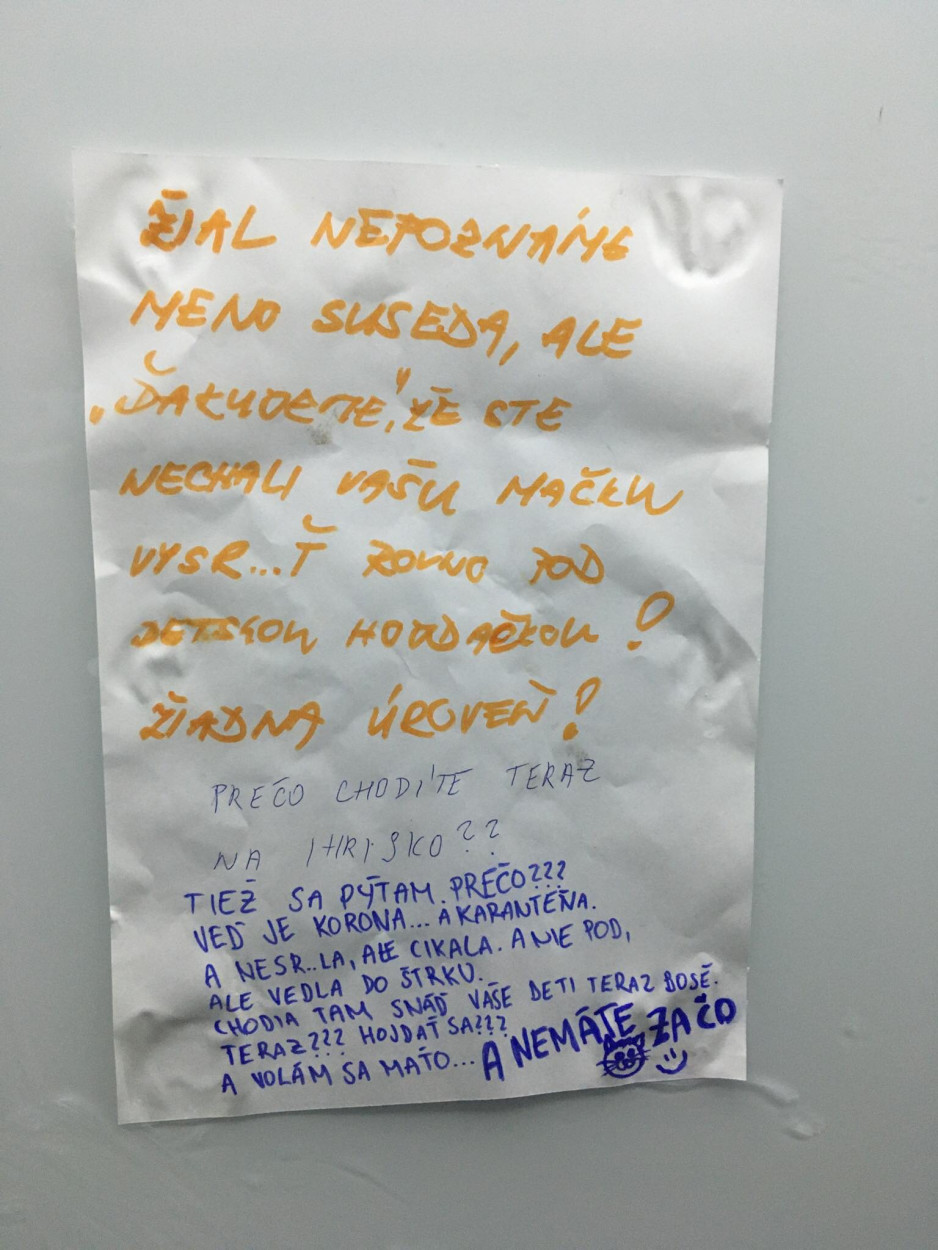 ŽIAL NEPOZNÁME
MENO SUSEDA, ALE
„ĎAKUJEME", ŽE STE
NECHALI VAŠU MAČKU
VYSR...Ť ROVNO POD
DETSKOU HOJDAČKOU!
ŽIADNA ÚROVEŇ!
PREČO CHODÍTE TERAZ
NA IHRISKO??
TIEŽ SA PÝTAM. PREČO???
VEĎ JE KORONA... A KARANTÉNA.
A NESR..LA, ALE CIKALA. A NIE POD,
ALE VEDLA DO ŠTRKU.
CHODIA TAM SNÁĎ VAŠE DETI TERAZ BOSÉ.
TERAZ??? HOJDAŤ SA???
A VOLÁM SA MAŤO... A NEMÁTE ZA ČO